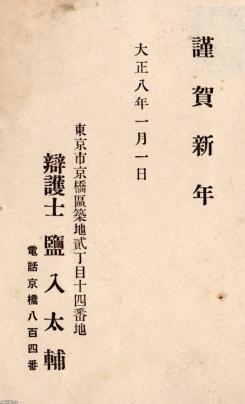 謹賀新年
大正八年一月一日
東京市京橋區築地貳丁目十四番地
辯護士 鹽入太輔
電話京橋八百四番